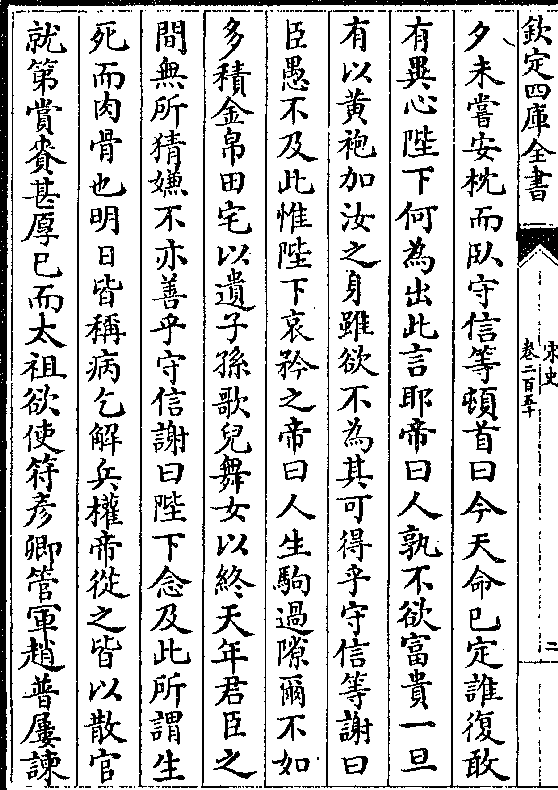 欽定四庫全書
宋史
卷二百五十
二
夕未嘗安枕而臥守信等頓首曰今天命已定誰復敢
有異心陛下何為出此言耶帝曰人孰不欲富貴一旦
有以黃袍加汝之身雖欲不為其可得乎守信等謝曰
臣愚不及此惟陛下哀矜之帝曰人生駒過隙爾不如
多積金帛田宅以遺子孫歌兒舞女以終天年君臣之
間無所猜嫌不亦善乎守信謝曰陛下念及此所謂生
死而肉骨也明日皆稱病乞解兵權帝從之皆以散官
就第賞賚甚厚已而太祖欲使符彥卿管軍趙普屢諫